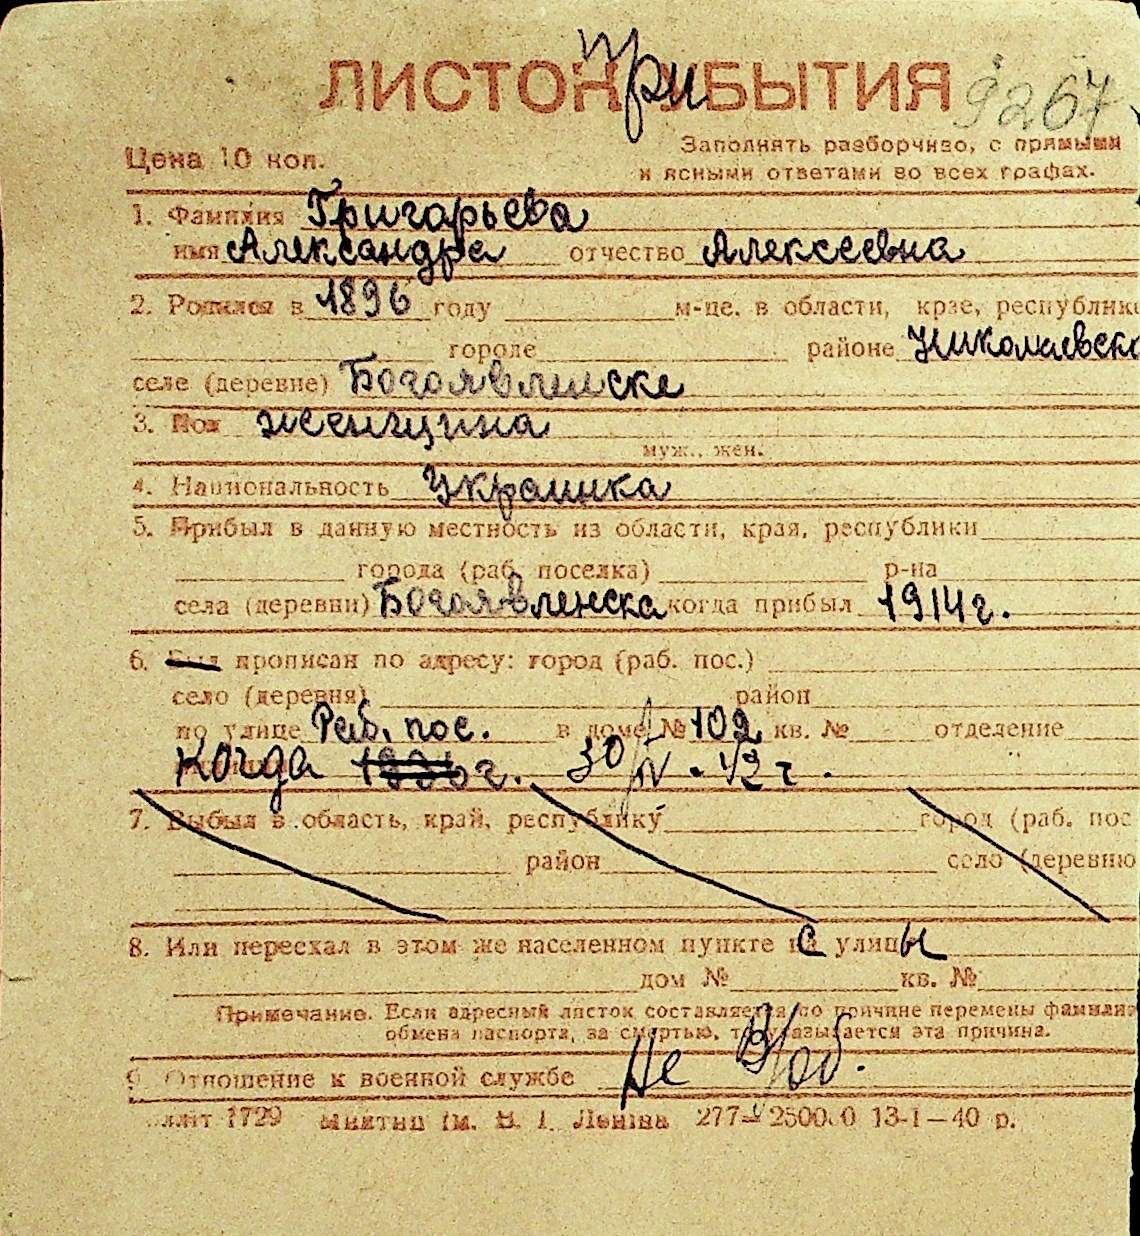 ЛИСТОК ПРИБЫТИЯ 9267
Цена 10 коп.
Заполнять разборчиво, с прямыми
и ясными ответами во всех графах.
1. Фамилия Григарьева
имя Александра отчество Алексеевна
2. Родился в 1896 году м-це, в области, крае, республике
городе районе Николаевско
селе (деревне) Богоявленске
3. Пол женщина
муж., жен.
4. Национальность Украинка
5. Прибыл в данную местность из области, края, республики
города (раб. поселка) р-на
села (деревни) Богоявленска когда прибыл 1914 г.
6. Был прописан по адресу: город (раб. пос.)
село (деревня) район
по улице Раб. пос. в доме № 102 кв. № отделение
Когда 30/IV. 42 г.
7. Выбыл в область, край, республику город (раб. пос
район село (деревню
8. Или переехал в этом же населенном пункте с улицы
дом № кв. №
Примечание. Если адресный листок составляется по причине перемены фамилии
обмена паспорта, за смертью, то указывается эта причина.
9. Отношение к военной службе Не в/об.
1729 ім. В. І. Леніна 277— 13-I—40 р.